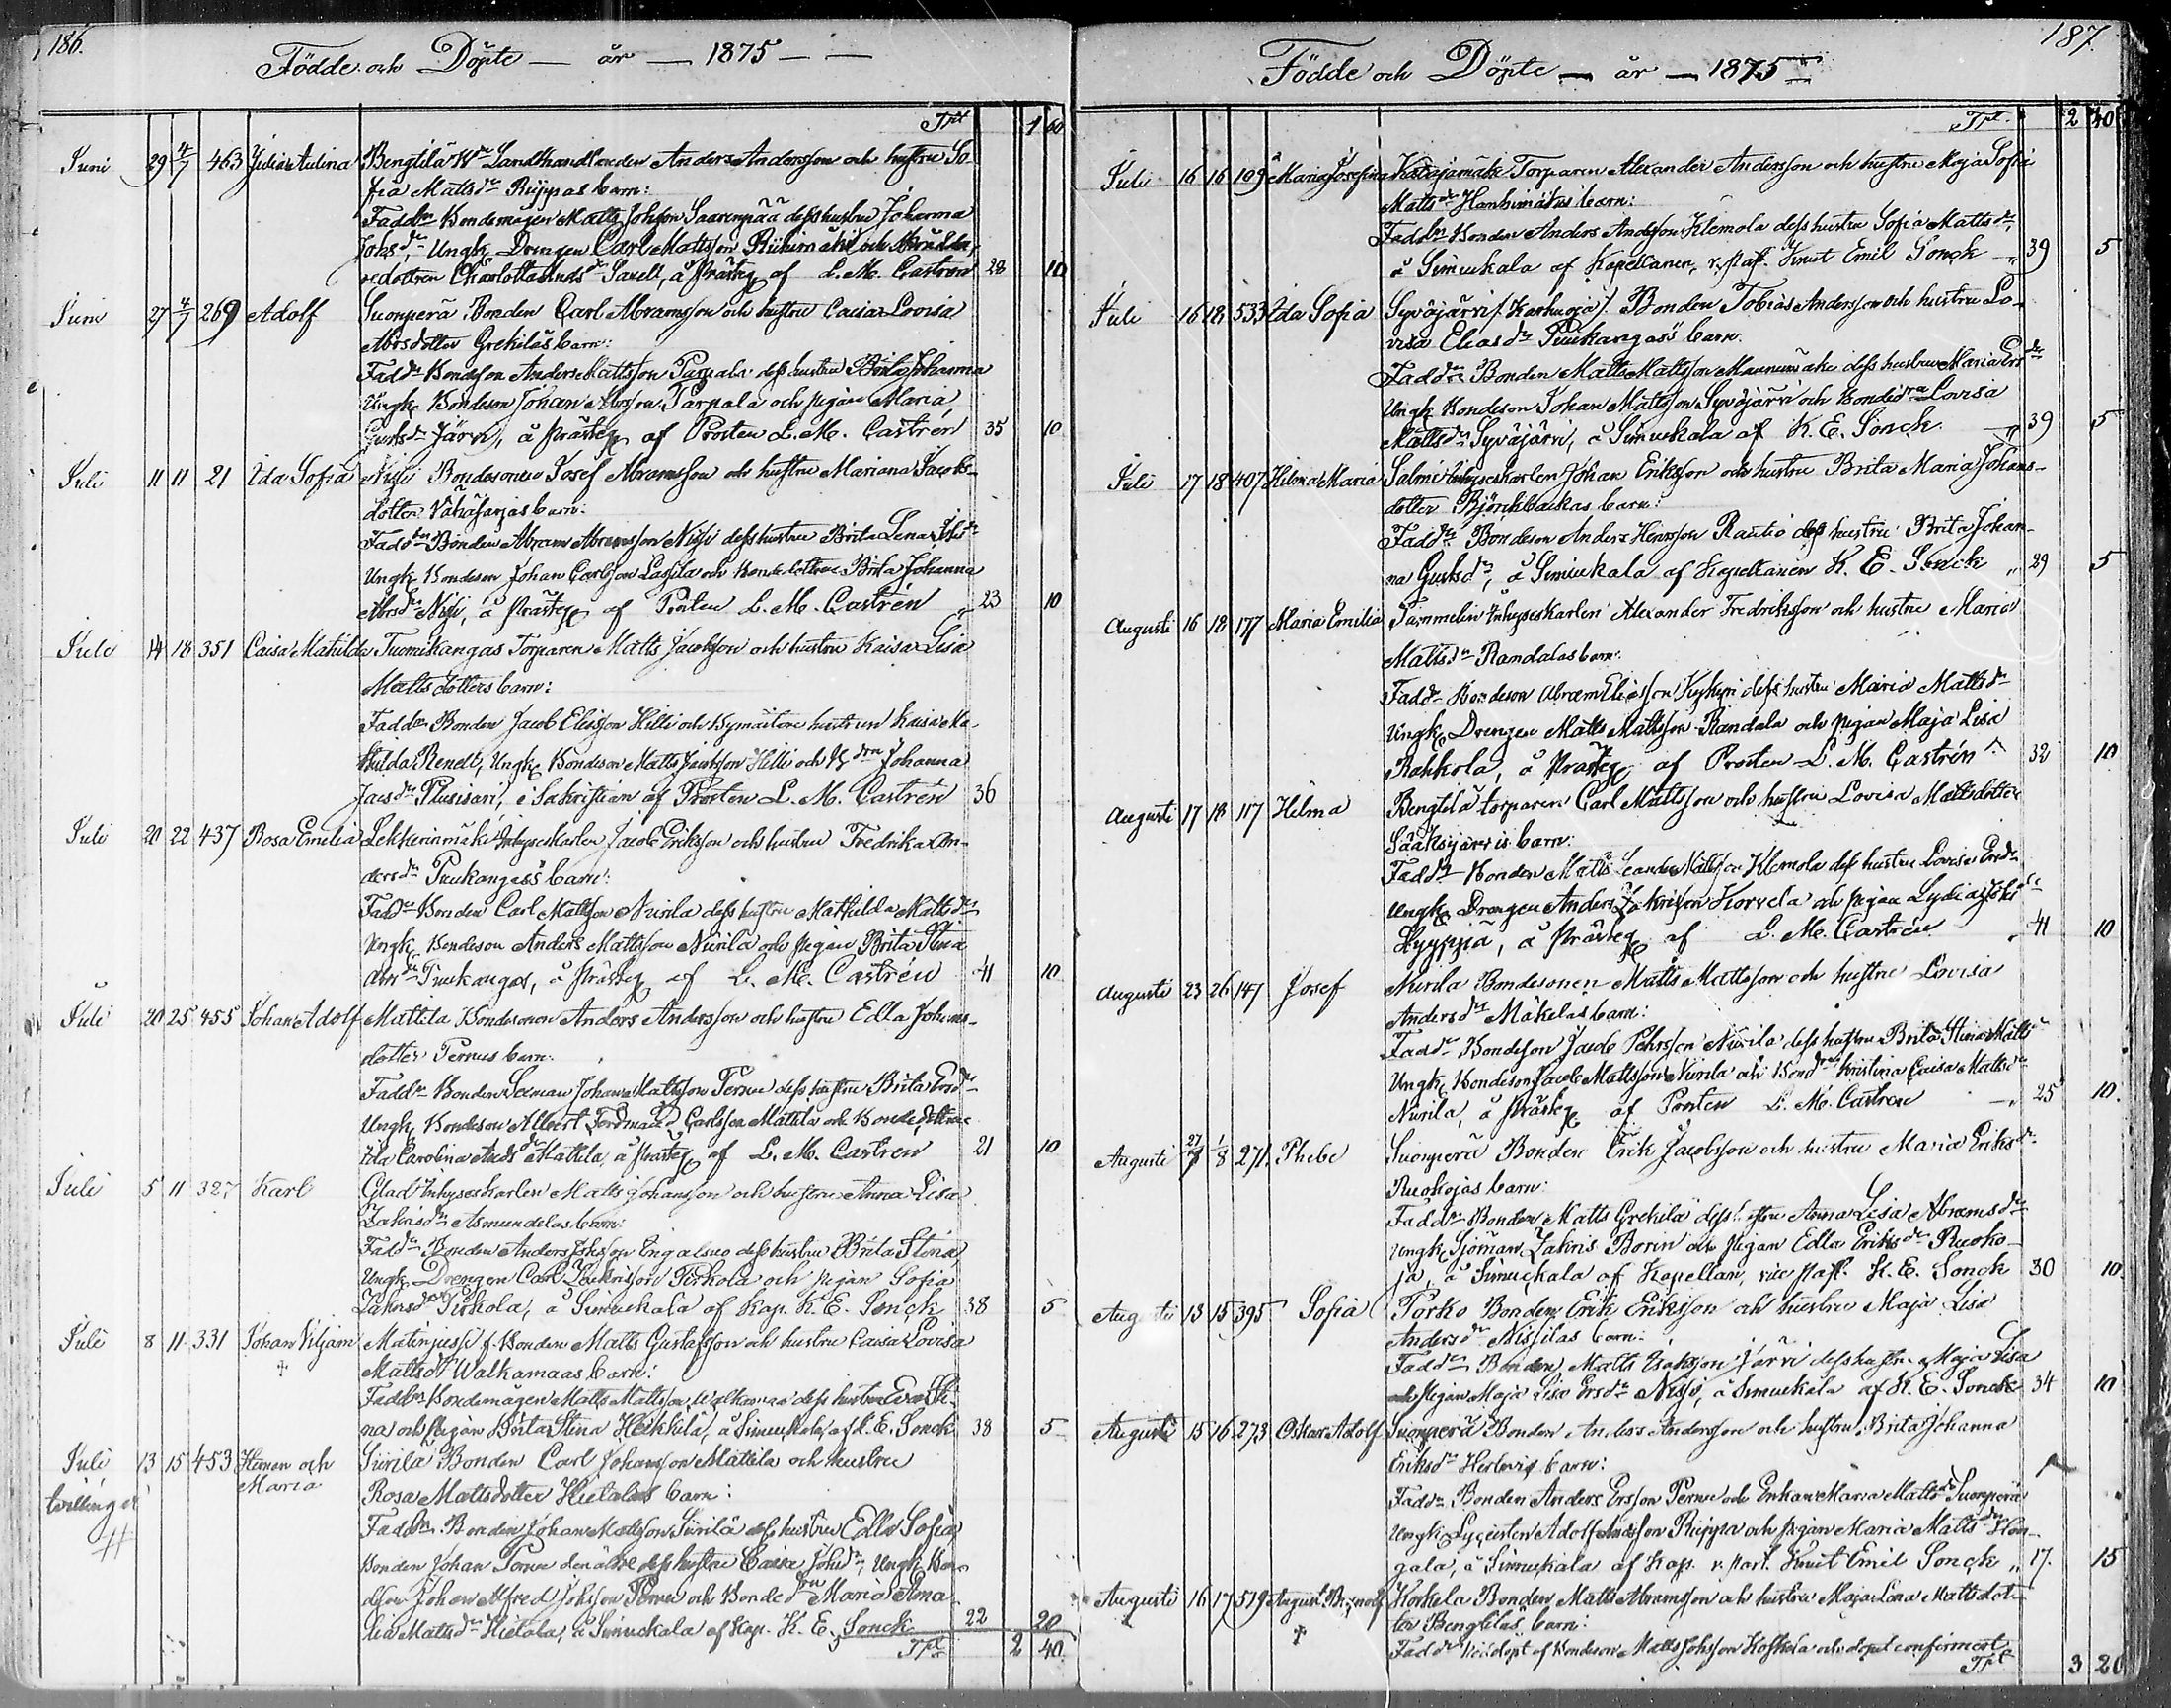 186.
Födde och Döpte — år — 1875 — —
Trt 1 60
Juni 29 4/7 463 Julia Aulina Bengtilä Wd Landthandlanden Anders Andersson och hustru So-
fia Mattsdr Ruppas barn:
Faddr Bondemågen Matts Johsson Saarenpää dess hustru Johanna
Johsdr, Ungk. Drengen Carl Mattsson Riihimäki och
dottren Charlotta Andsdr Savell, å Prästeg af L. M. Castrén 28 10
Juni 27 4/7 269 Adolf Suonperä Bonden Carl Abramsson och hustru Caisa Lovisa
Abrsdotter Grekiläs barn:
Faddr Bondeson Anders Mattsson Parpala dess hustru Brita Johanna
Ungk Bondeson Johan Abrsson Parpala och pigan Maria
Gustsdr Järvi, å Prästeg af Prosten L. M. Castrén 35 10
Juli 11 11 21 Ida Sofia Nissi Bondesonen Josef Abramsson och hustru Mariana Jacobs-
dotter Vähäsarjas barn:
Faddrer Bonden Abram Abramsson Nissi dess hustru Brita Lena Johsdr
Ungk Bondeson Johan Carlsson Lassila och Bondedottren Brita Johanna
Abrsdr Nissi, å Prästeg af Prosten L. M. Castrén „ 23 10
Juli 14 18 351 Caisa Mathilda Tuomikangas Torparen Matts Jacobsson och hustru Kaisa Lisa
Matts dotters barn:
Faddr Bonden Jacob Eliasson Hilli och hustrun Kaisa Ma-
thilda Renell, Ungk Bondeson Matts Jacobsson Hilli och Bdrn Johanna
Jacsdr Plusisari, i Sakristian af Prosten L. M. Castrén 36
Juli 20 22 437 Rosa Emelia Lekkerimäki Inhyseskarlen Jacob Eriksson och hustru Fredrika An-
dersdr Puukangas's barn:
Faddr Bonden Carl Mattsson Niirila dess hustru Mathilda Mattsdr
Ungk Bondeson Anders Mattsson Niirila och pigan Brita Stina
Abrsdr Puukangas, å Prästeg af L. M. Castrén 41 10
Juli 20 25 455 Johan Adolf Mattila Bondesonen Anders Andersson och hustru Edla Johans-
dotter Pernus barn:
Faddr Bonden Seeman Johan Mattsson Pernu dess hustru Brita Ersdr
Ungk Bondeson Albert Ferdinand Carlsson Mattila och Bondedottren
Ida Carolina Andsdr Mattila å Prästeg af L. M. Castrén 21 10
Juli 5 11 327 Karl Glad Inhyseskarlen Matts Johansson och hustru Anna Lisa
Zakrisdr Asmundelas barn:
Faddr Bonden Anders Johsson Engalsuo dess hustru Brita Stina,
Ungk Drengen Carl Zakrisson Pirkola och pigan Sofia
Zakrisdr Pirkola, å Simuckala af Kap. K. E. Sonck 38 5
Juli 8 11 331 Johan Viljam Matinjussi f. Bonden Matts Gustafsson och hustru Caisa Lovisa
† Mattsdr Walkamaas barn:
Faddr Bondemågen Matts Mattsson Walkamaa dess hustru Eva Sti-
na och pigan Brita Stina Heikkilä, å Simuckala, af K. E. Sonck 38 5
Juli 13 15 453 Herman och Siirilä Bonden Carl Johansson Mattila och hustru
tvillingar Maria Rosa Mattsdotter Hietalas barn:
Faddr Bonden Johan Mattsson Siirilä dess hustru Edla Sofia,
Bonden Johan Pernu den äldre dess hustru Caisa Johsdr, Ungk Bon-
deson Johan Alfred Johsson Pernu och Bondedrn Maria Ama-
lia Mattsdr Hietala, å Simuckala af Kap. K. E. Sonck 22 20
Trt 2 40.
187
Födde och Döpte — år — 1875
Trt. 2 40
Juli 16 16 109 Maria Josefina Katajamäki Torparen Alexander Andersson och hustru Maja Sofia
Mattsdr Hanhimäkis barn:
Faddr Bonden Anders Andsson Klemola dess hustru Sofia Mattsdr,
å Simuckala af Kapellanen, v. past. Knut Emil Sonck „ 39 5
Juli 16 18 533 Ida Sofia Syväjärvi /: Karhuoja :/ Bonden Tobias Andersson och hustru Lo-
visa Eliasdr Puukangas's barn.
Faddr Bonden Matts Mattsson Maunumäki dess hustru Maria Ersdr
Ungk Bondeson Johan Mattsson Syväjärvi och Bondedrn Lovisa
Mattsdr Syväjärvi, å Simuckala af K. E. Sonck „ 39 5
Juli 17 18 407 Hilma Maria Salmi Inhyseskarlen Johan Eriksson och hustru Brita Maria Johans-
dotter Björkbackas barn:
Faddr Bondeson Anders Henrsson Rautio dess hustru Brita Johan-
na Gustsdr, å Simuckala af Kapellanen K. E. Sonck „ 29 5
Augusti 16 18 177 Maria Emilia Tammelin Inhyseskarlen Alexander Fredriksson och hustru Maria
Mattsdr Randalas barn:
Faddr Bondeson Abram Eliasson Kykyri dess hustru Maria Mattsdr
Ungk Drengen Matts Mattsson Randala och pigan Maja Lisa
Rahkola, å Prästeg af Prosten L. M. Castrén „ 32 10
Augusti 17 18 117 Hilma Bengtilä torparen Carl Mattsson och hustru Lovisa Mattsdotter
Sääksjärvis barn:
Faddr Bonden Matts Leander Mattsson Klemola dess hustru Lovisa Ersdr
Ungk Drengen Anders Zakrisson Korvela och pigan Lydia Johsdr
Hyyppä, å Prästeg af L. M. Castrén „ 41 10
Augusti 23 26 147 Josef Niirila Bondesonen Matts Mattsson och hustru Lovisa
Andersdr Mäkelas barn:
Faddr Bondeson Jacob Pehrsson Niirila dess hustru Brita Stina Mattsdr
Ungk Bondeson Jacob Mattsson Niirila och Bonddrn Kristina Caisa Mattsdr
Niirila, å Prästeg af Prosten L. M. Castrén „ 25 10.
Augusti 27/7 1/8 271. Phebe Suonperä Bonden Erik Jacobsson och hustru Maria Eriksdr
Ruokojas barn:
Faddr Bonden Matts Grekilä dess hustru Anna Lisa Abramsdr
Ungk Sjöman Zakris Borin och Pigan Edla Eriksdr Ruoko-
ja, å Simuckala af Kapellan, vice past. K. E. Sonck 30 10
Augusti 13 15 395 Sofia Torko Bonden Erik Eriksson och hustru Maja Lisa
Andersdr Nissilas barn:
Faddr Bonden Matts Isaksson Järvi dess hustru Maja Lisa
och Pigan Maja Lisa Ersdr Nissi, å Simuckala af K. E. Sonck 34 10
Augusti 15 16 273 Oskar Adolf Suonperä Bonden Anders Andersson och hustru Brita Johanna
Eriksdr Herlevis barn:
Faddr Bonden Anders Ersson Pernu och Enkan Maria Mattsdr Suonperä
Ungk Lyceisten Adolf Andsson Ruppa och pigan Maria Mattsdr Hon-
gala, å Simuckala af Kap. v. past. Knut Emil Sonck „ 17. 15
Augusti 16 17 519 August Brynolf Korkela Bonden Matts Abramsson och hustru Maja Lena Mattsdot-
† ter Bengtiläs barn:
Faddr Nöddöpt af Bondeson Matts Johsson Koskela och dopet confirmert
Trt 3 20